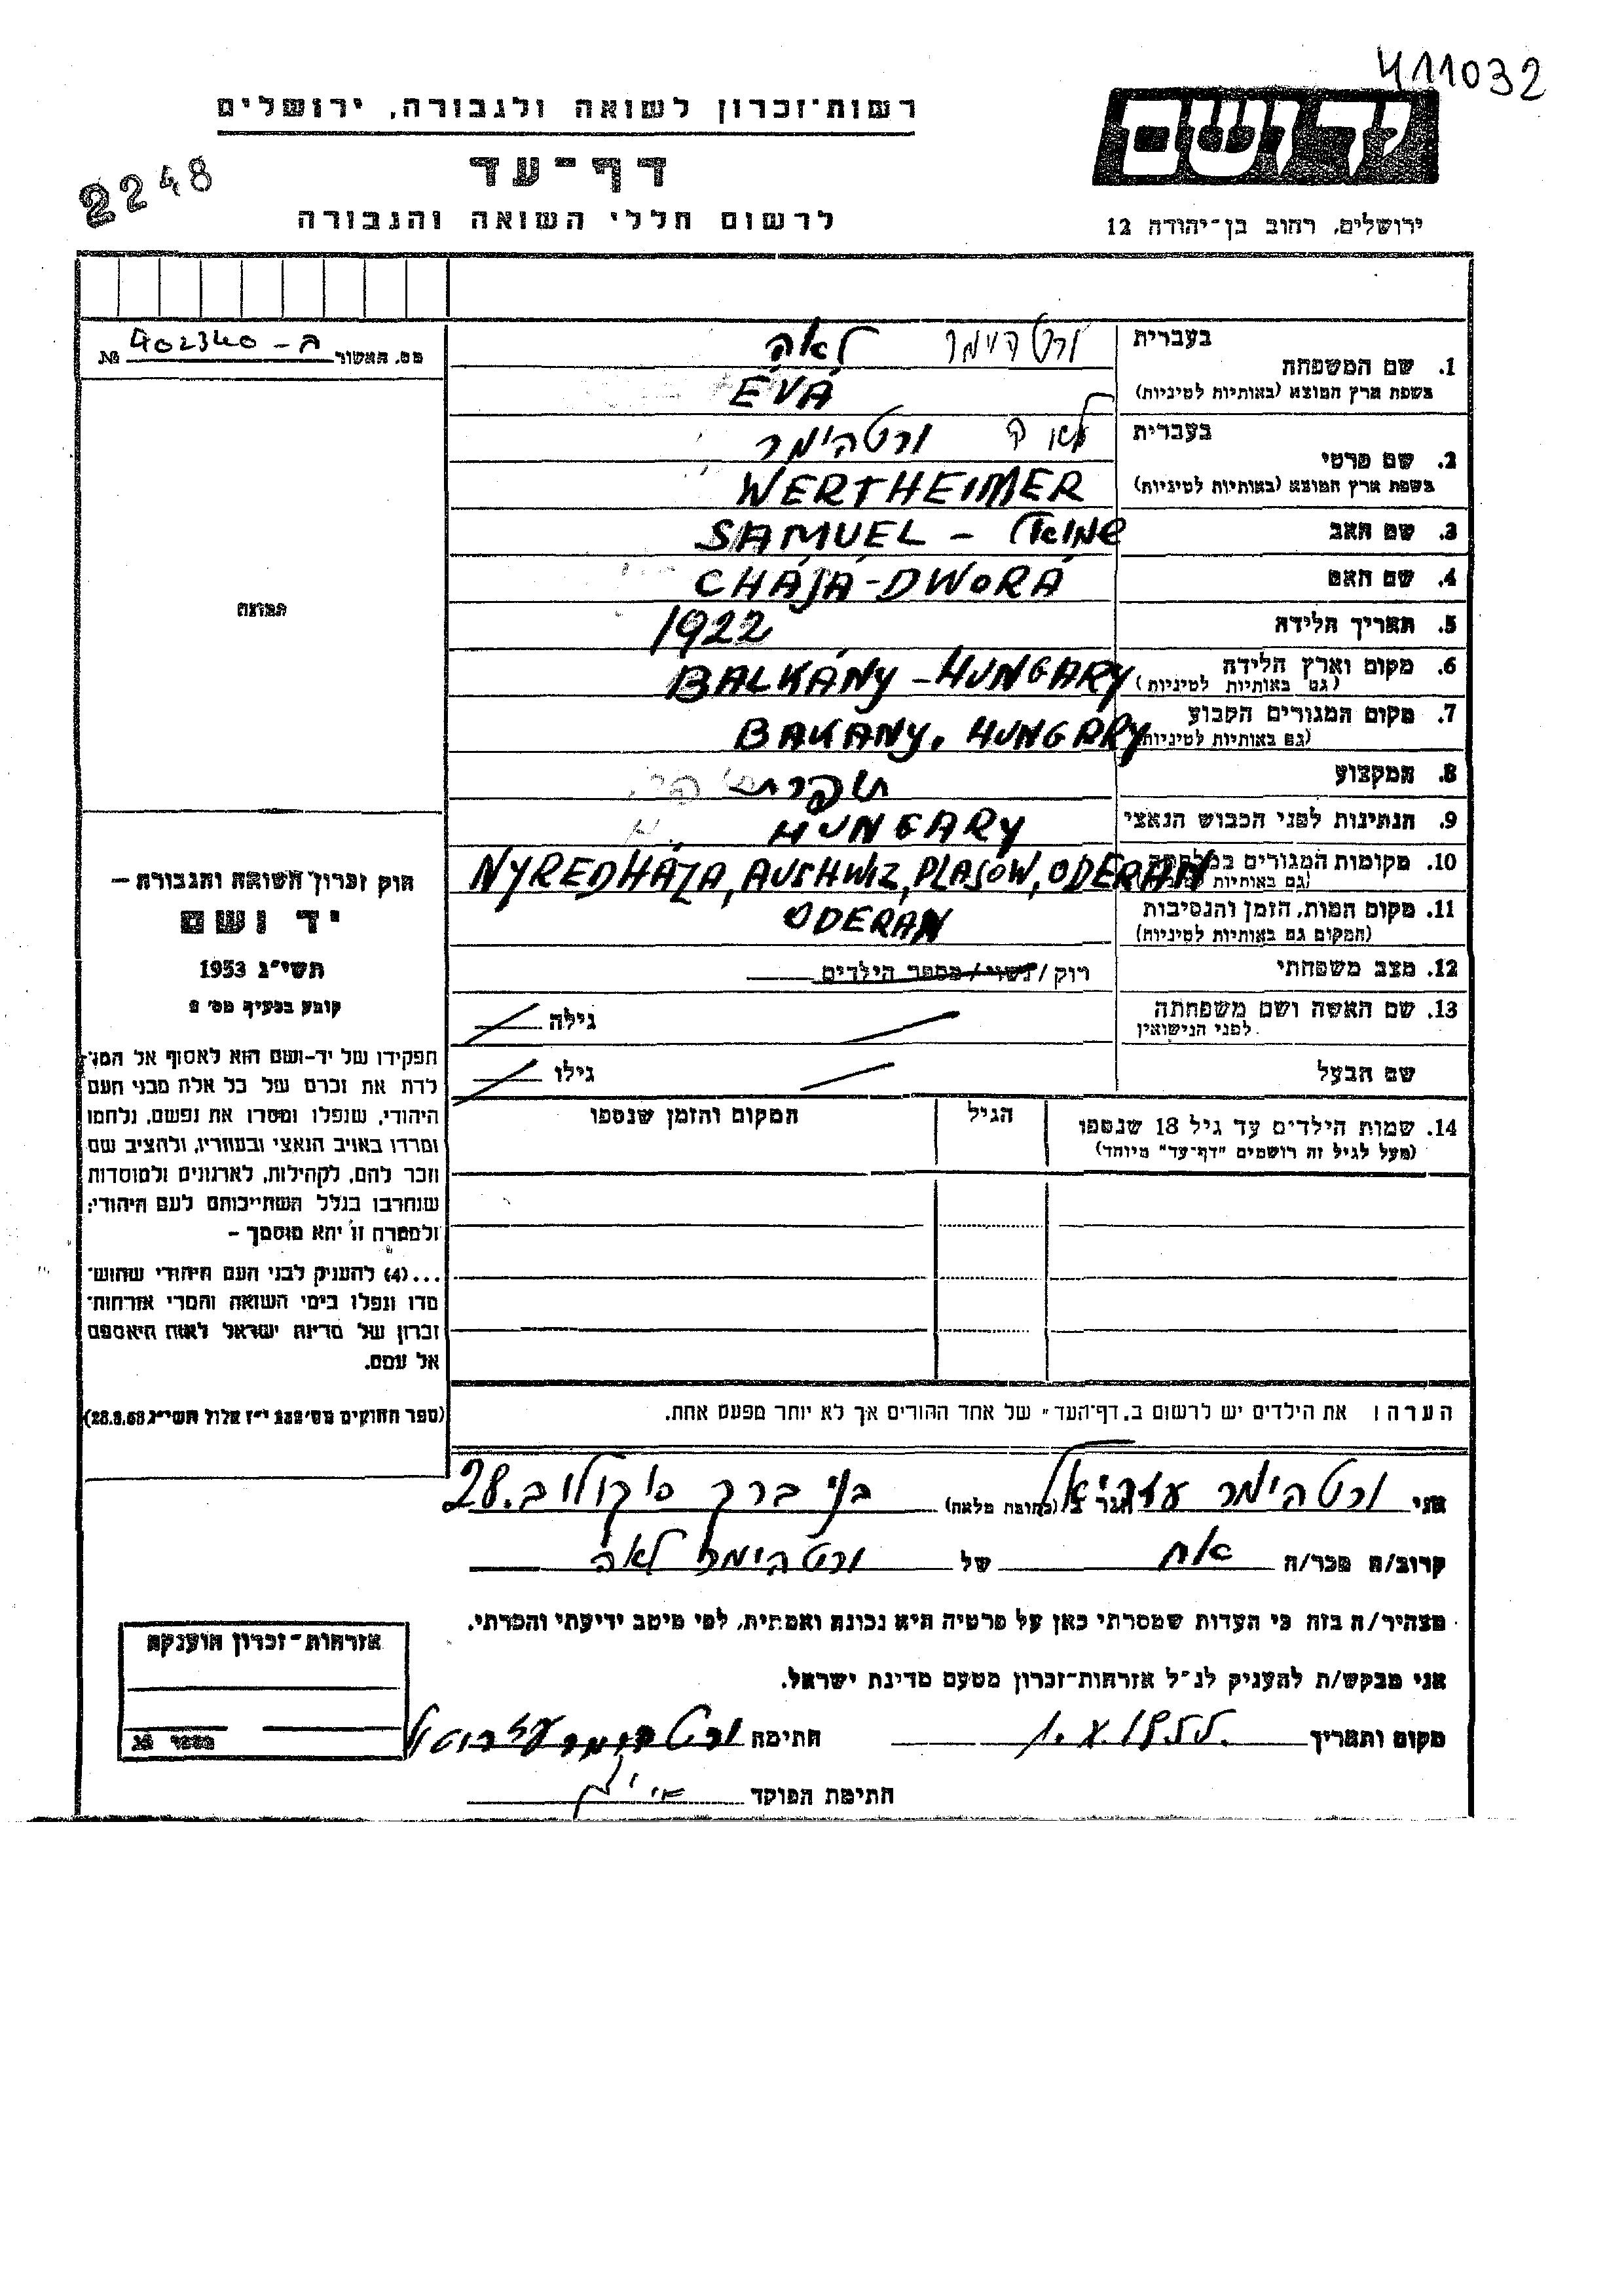 411032
רשות-זכרון לשואה ולגבורה, ירושלים
יד ושם
דף-עד
2248
לרשום חללי השואה והגבורה
ירושלים, רחוב בן-יהודה 12
בעברית ורטהימר לאה
1. שם המשפחה
בשפת ארץ המוצא (באותיות לטיניות) ÉVÁ
בעברית לאה ורטהימר
2. שם פרטי
בשפת ארץ המוצא (באותיות לטיניות) WERTHEIMER
3. שם האב SAMUEL - שמואל
4. שם האם CHÁJÁ-DWORÁ
5. תאריך הלידה 1922
6. מקום וארץ הלידה BALKÁNY - HUNGARY
(גם באותיות לטיניות)
7. מקום המגורים הקבוע BAKANY, HUNGARY
(גם באותיות לטיניות)
8. המקצוע תופרת
9. הנתינות לפני הכבוש הנאצי HUNGARY
10. מקומות המגורים במלחמה NYREDHÁZA, AUSHWIZ, PLASOW, ODERAN
(גם באותיות לטיניות)
11. מקום המות, הזמן והנסיבות ODERAN
(המקום גם באותיות לטיניות)
12. מצב משפחתי רווק / נשוי / מספר הילדים
13. שם האשה ושם משפחתה גילה
לפני הנישואין
שם הבעל גילו
14. שמות הילדים עד גיל 18 שנספו הגיל המקום והזמן שנספו
(מעל לגיל זה רושמים "דף-עד" מיוחד)
הערה: את הילדים יש לרשום ב"דף-העד" של אחד ההורים אך לא יותר מפעם אחת.
מס. האשור ה-402340 №
תמונה
חוק זכרון השואה והגבורה –
יד ושם
תשי"ג 1953
קובע בסעיף מס' 2
תפקידו של יד-ושם הוא לאסוף אל המו-
לדת את זכרם של כל אלה מבני העם
היהודי, שנפלו ומסרו את נפשם, נלחמו
ומרדו באויב הנאצי ובעוזריו, ולהציב שם
וזכר להם, לקהילות, לארגונים ולמוסדות
שנחרבו בגלל השתייכותם לעם היהודי;
ולמטרה זו יהא מוסמך –
...(4) להעניק לבני העם היהודי שהוש-
מדו ונפלו בימי השואה והמרי אזרחות-
זכרון של מדינת ישראל לאות היאספם
אל עמם.
(ספר החוקים מס' 132 י"ז אלול תשי"ג 28.8.53)
אני ורטהימר עזריאל הגר ב (כתובת מלאה) בני ברק סוקולוב 28
קרוב/ה מכר/ה אח של ורטהימר לאה
מצהיר/ה בזה כי העדות שמסרתי כאן על פרטיה היא נכונה ואמתית, לפי מיטב ידיעתי והכרתי.
אני מבקש/ת להעניק לנ"ל אזרחות-זכרון מטעם מדינת ישראל.
מקום ותאריך חתימה ורטהימר עזריאל
חתימת הפוקד
אזרחות-זכרון הוענקה
מספר №